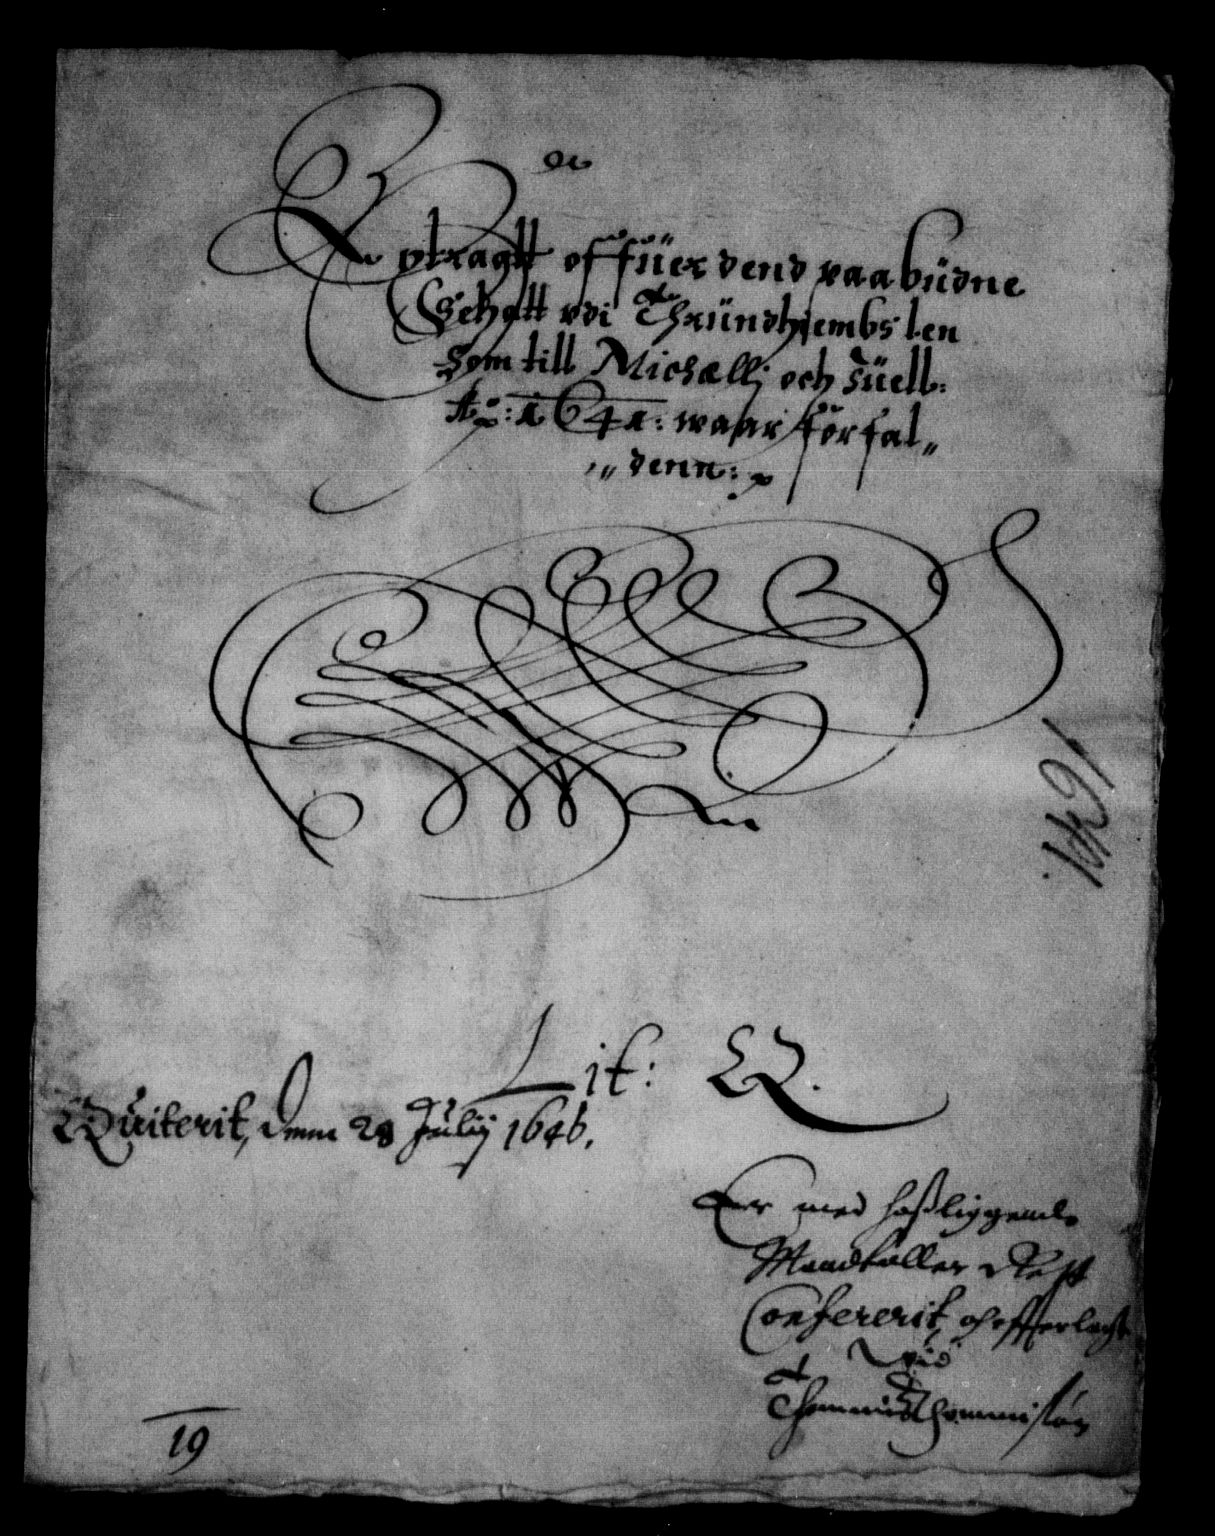 Extragtt offüer dend paabüdne
Schatt vdi Thründhiembs len
som till Michaelj och Jüell:
A͠o: 1641: waar forfal„
„denn:
1641.
Lit: Q.
Quiterit, Denn 28 Julij 1646.
Er med hosliggende
Mandtaller
Confererit, och offuerlagt
Ved
Thommis Thommisøn
19